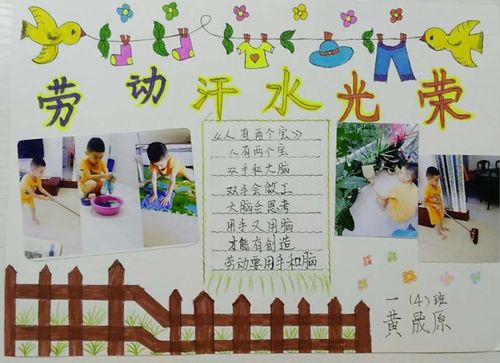 劳动汗水光荣
《人有两个宝》
人有两个宝
双手和大脑
双手会做工
大脑会思考
用手又用脑
才能有创造
劳动要用手和脑
一(4)班
黄晟原